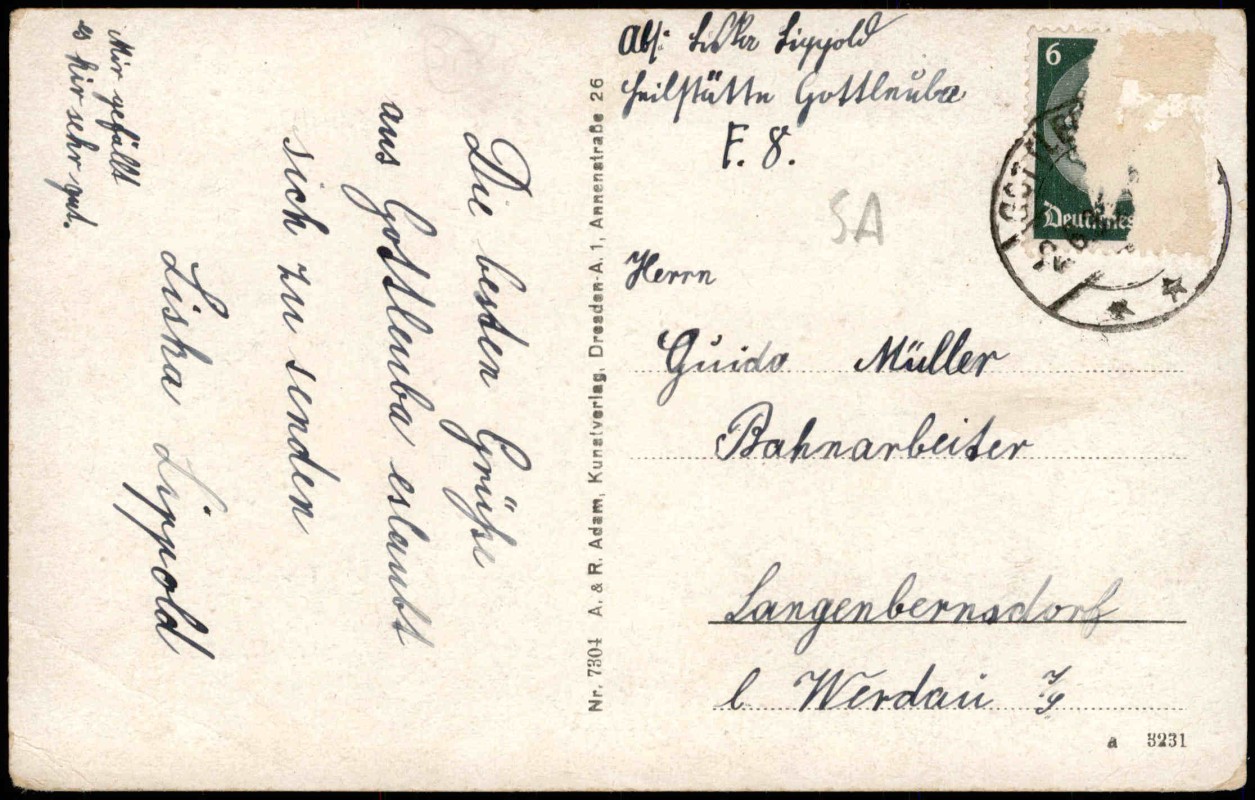 Mir gefällt
es hir sehr gut.
Die besten Grüße
aus Gottleuba erlaubt
sich zu senden
Liska Lippold
Nr. 7304 A. & R. Adam, Kunstverlag, Dresden-A. 1, Annenstraße 26
Abs: Liska Lippold
Heilstätte Gottleuba
F. 8.
6
Deutsches
SA
Herrn
Guido Müller
Bahnarbeiter
Langenbernsdorf
b Werdau i/S
a 5231